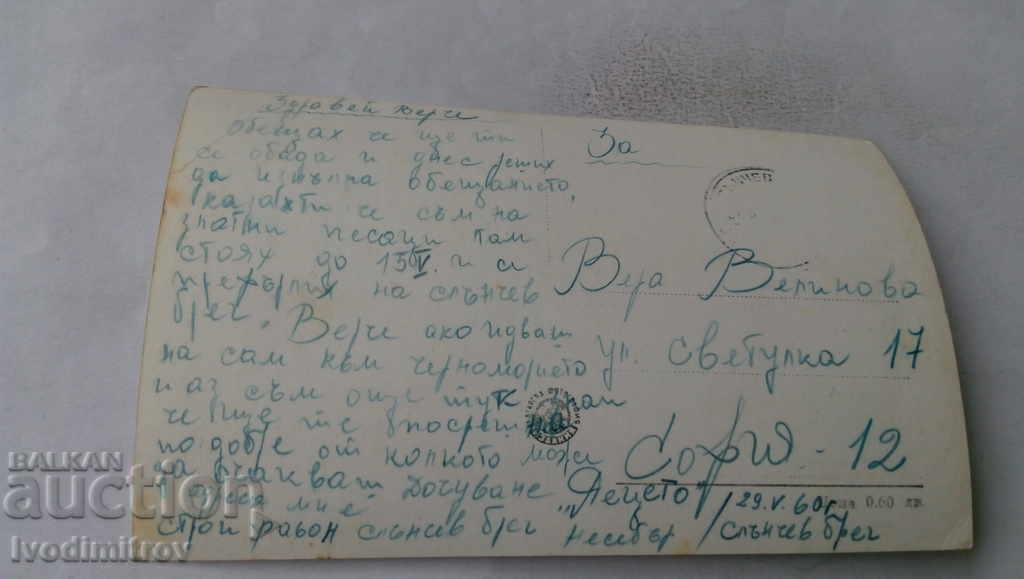 Здравей Верче
Обещах че ще ти
се обадя и днес реших
да изпълня обещанието,
казахти че съм на
златни песаци там
стоях до 15 V. и се
прехърлих на слънчев
бряг. Верче ако идваш
на сам към черноморието
и аз съм още тук знай
че ще те посрещна
по добре от колкото може
да очакваш Дочуване "Пецето"
Адреса ми е
Строй район Слънчев бряг Несебър / Слънчев бряг
29. V. 60г.
За
Вера Велинова
ул. Светулка 17
София - 12
Цена 0.60 лв.
BALKAN
auction
Ivodimitrov